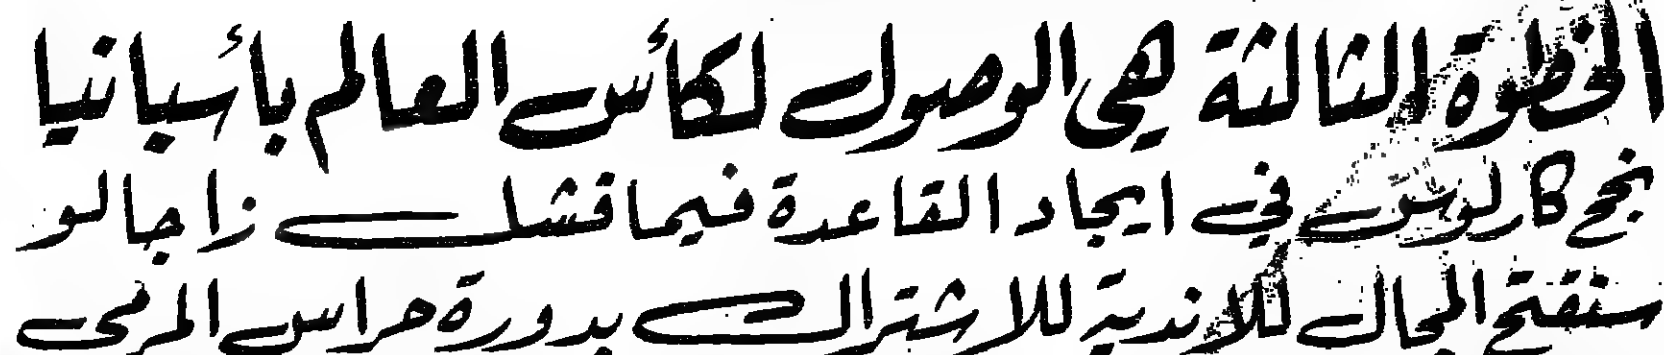 الخطوة الثالثة هي الوصول لكأس العالم بأسبانيا
نجح كارلوس في ايجاد القاعدة فيما فشل زاجالو
سنفتح المجال للاندية للاشتراك بدورة حراس المرمى